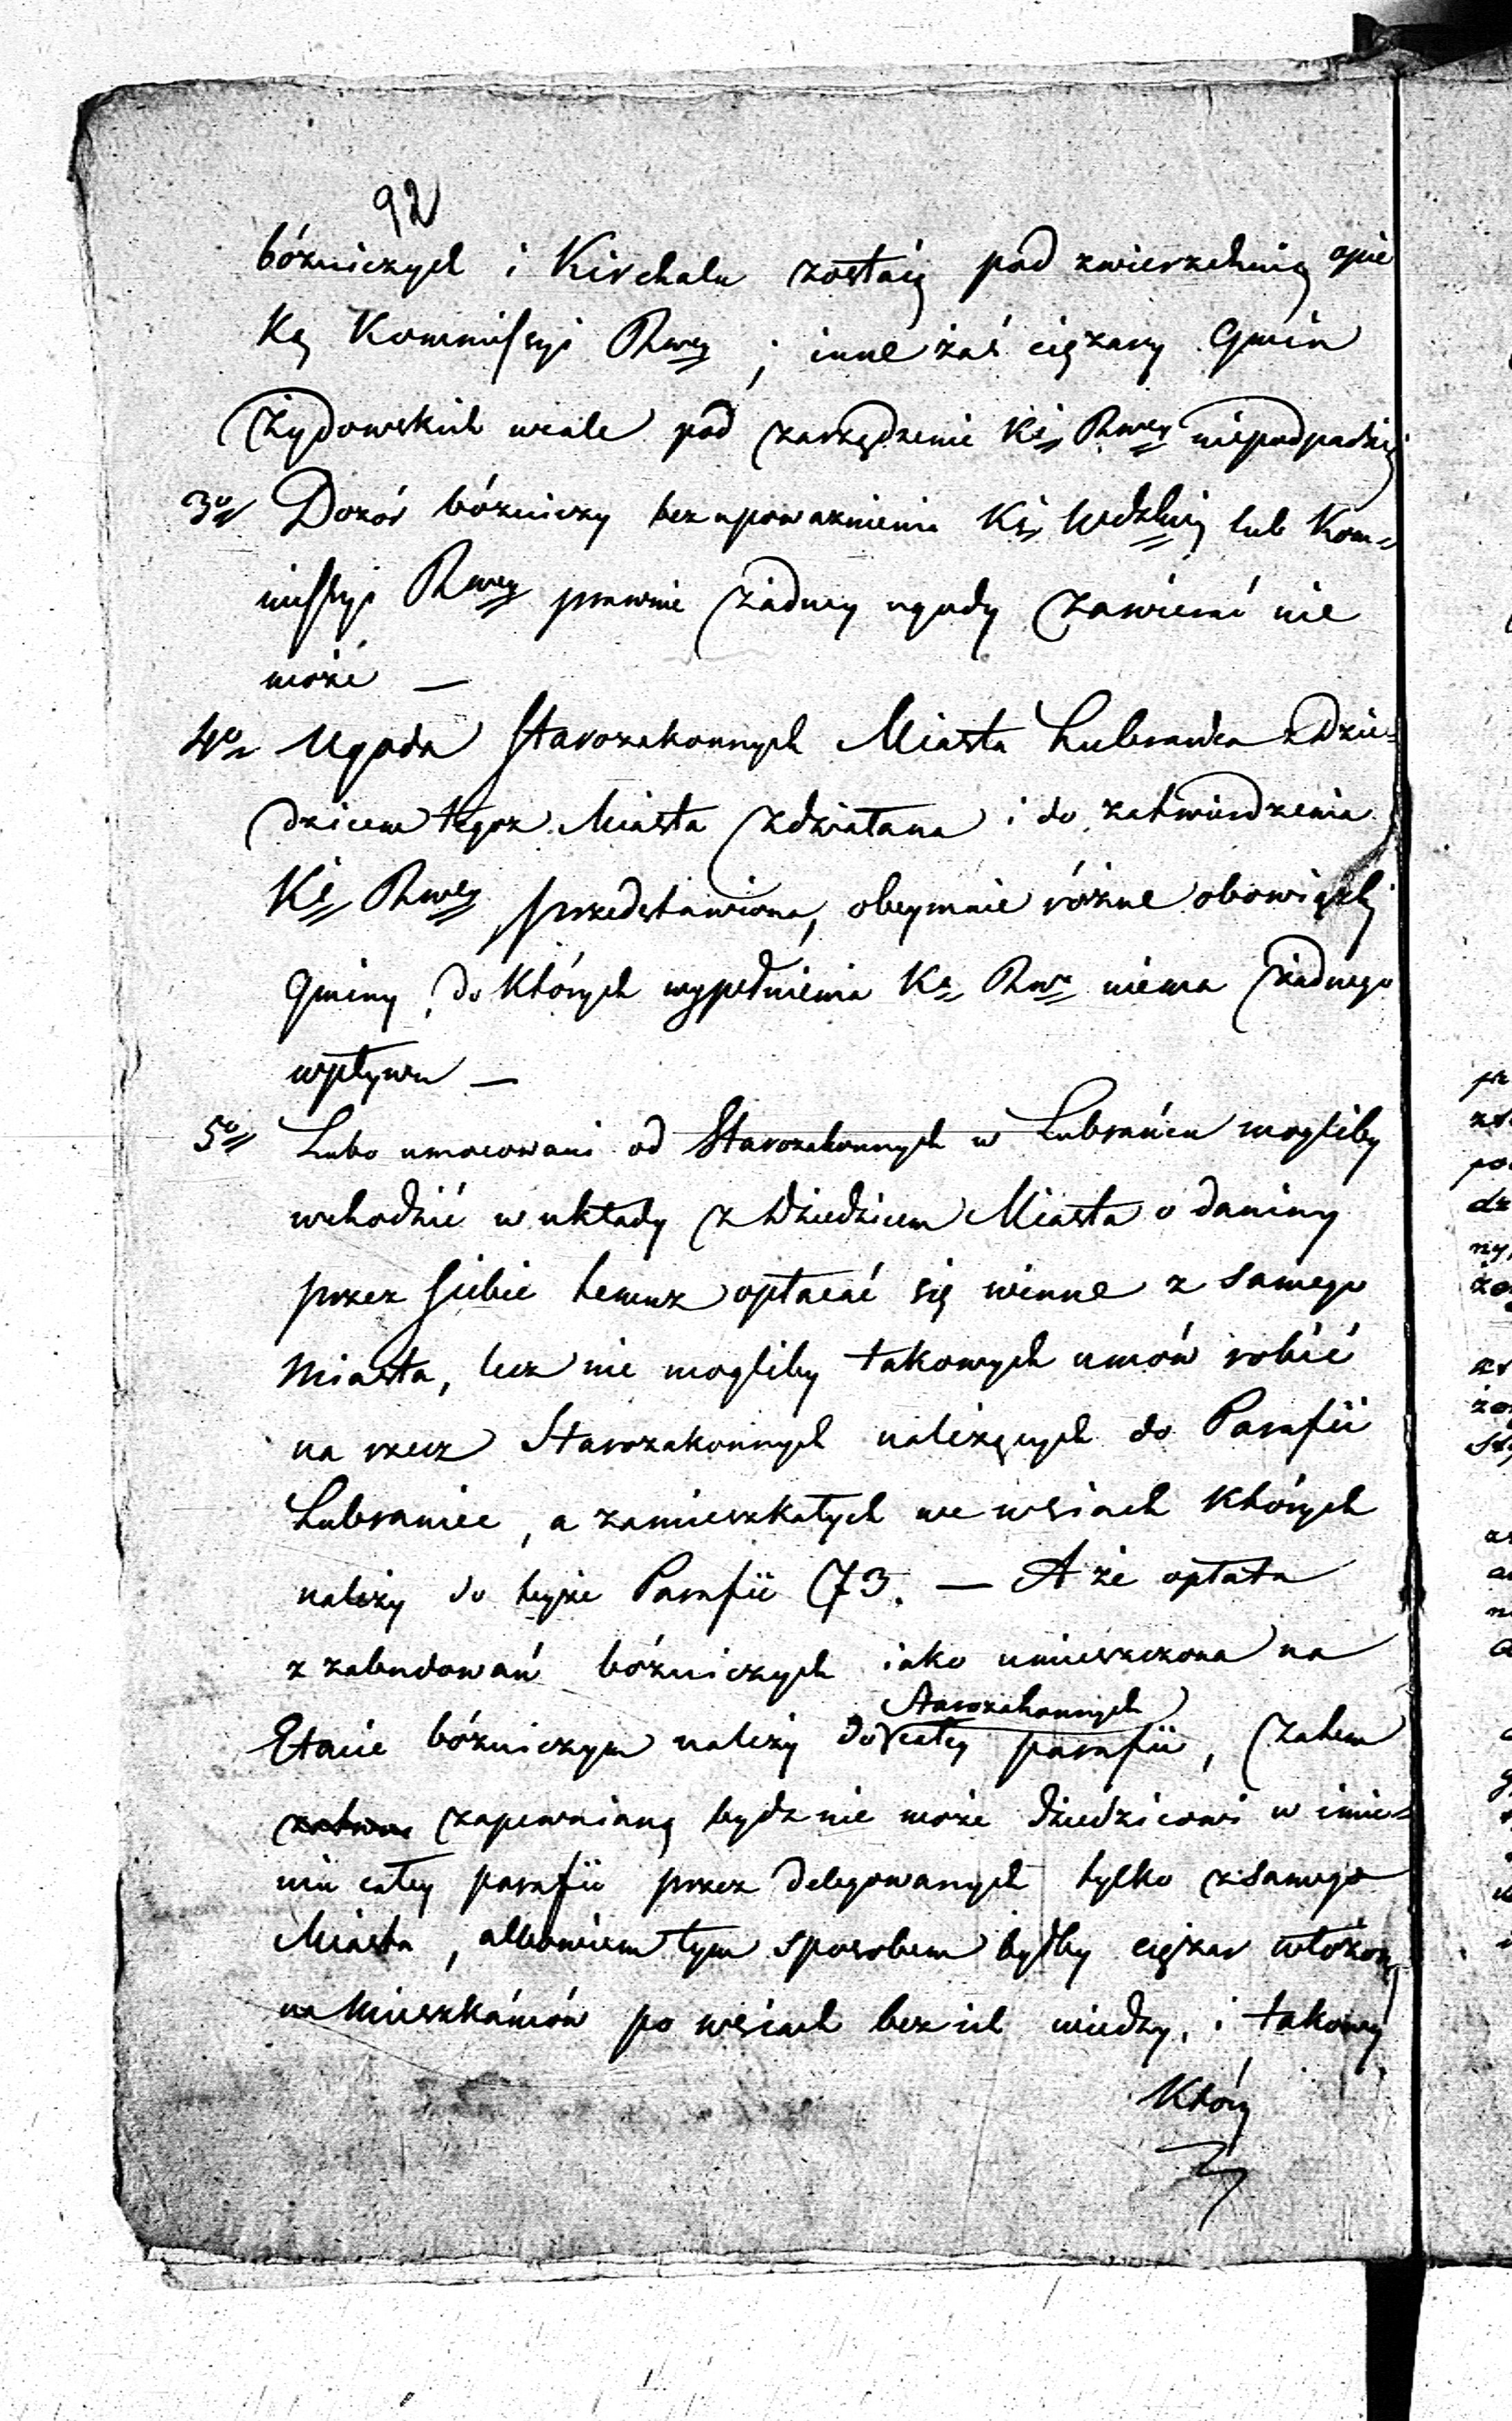 92
bóżniczych i Kirchału zostaią pod zwierzchnią opie
ką Kommissyi Rwey ; inne zaś ciężary Gmin
Żydowskich wcale pod zarządzenie Ki Rwey niepodpadaią
3o Dozór bóżniczy bez upoważnienia Ki Wdzkiey lub Kom=
missyi Rwey prawnie żadney ugody zawierać nie
może —
4o Ugoda Starozakonnych Miasta Lubrańca z Dzie=
dzicem tegoż Miasta zdziałana i do zatwierdzenia
Ki Rwey przedstawiona, obeymuie różne obowiązki
Gminy, do których wypełnienia Ka Rwa niema żadnego
wpływu —
5o Lubo umocowani od Starozakonnych w Lubrańcu mogliby
wchodzić w układy z Dziedzicem Miasta o daniny
przez siebie temuż opłacać się winne z samego
Miasta, lecz nie mogliby takowych umów robić
na rzecz Starozakonnych należących do Parafii
Lubraniec, a zamieszkałych we wsiach których
należy do teyże Parafii 73. — A że opłata
z zabudowań bóżniczych iako umieszczona na
Starozakonnych
Etacie bóżniczym należy do całey parafii, zatem
zapewnianą bydź nie może Dziedzicowi w imie=
niu całey parafii przez delegowanych tylko z samego
Miasta, albowiem tym sposobem byłby ciężar włożony
na Mieszkańców po wsiach bez ich wiedzy, i takowy
Który